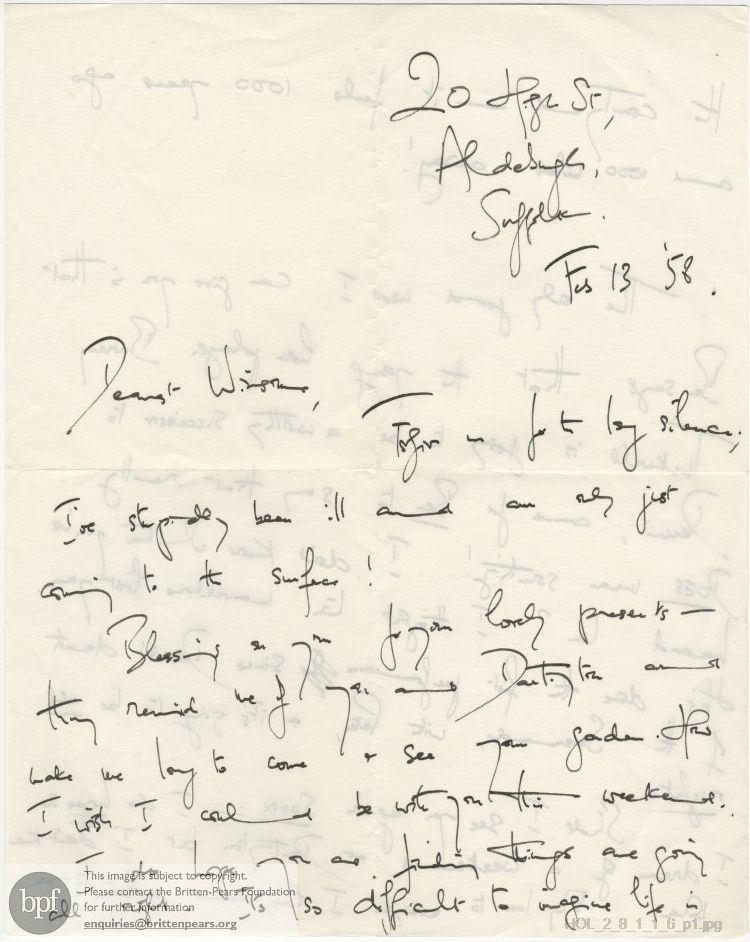 20 High St,
Aldeburgh,
Suffolk.
Feb 13 '58.
Dearest Winsome,
Forgive me for the long silence;
I've stupidly been ill and am only just
coming to the surface!
Blessings on you for your lovely presents —
they remind me of you and Dartington and
make me long to come & see your garden. How
I wish I could be with you this weekend.
I do hope you are finding things are going
all right. It's so difficult to imagine life in
bpf
This image is subject to copyright.
Please contact the Britten-Pears Foundation
for further information
enquiries@brittenpears.org
HOL_2_8_1_1_6_p1.jpg